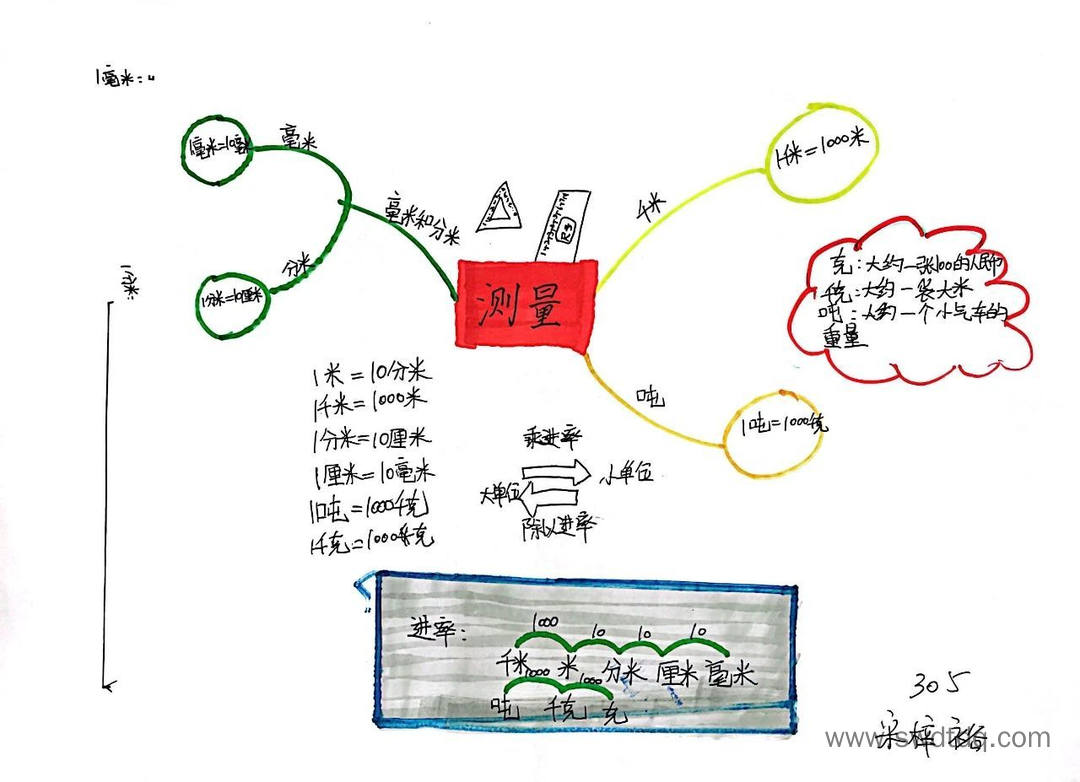 1毫米="
毫米
1毫米=10毫米
毫米和分米
分米
1分米=10厘米
尺子
测量
千米
1千米=1000米
吨
1吨=1000千克
克:大约一张100的人民币
千克:大约一袋大米
吨:大约一个小气车的
重量
1米=10分米
1千米=1000米
1分米=10厘米
1厘米=10毫米
1吨=1000千克
1千克=1000千克
乘进率
大单位
小单位
除以进率
进率:
1000 10 10 10
千米 米 分米 厘米 毫米
1000 1000
吨 千克 克
305
www.sxdfdq.com